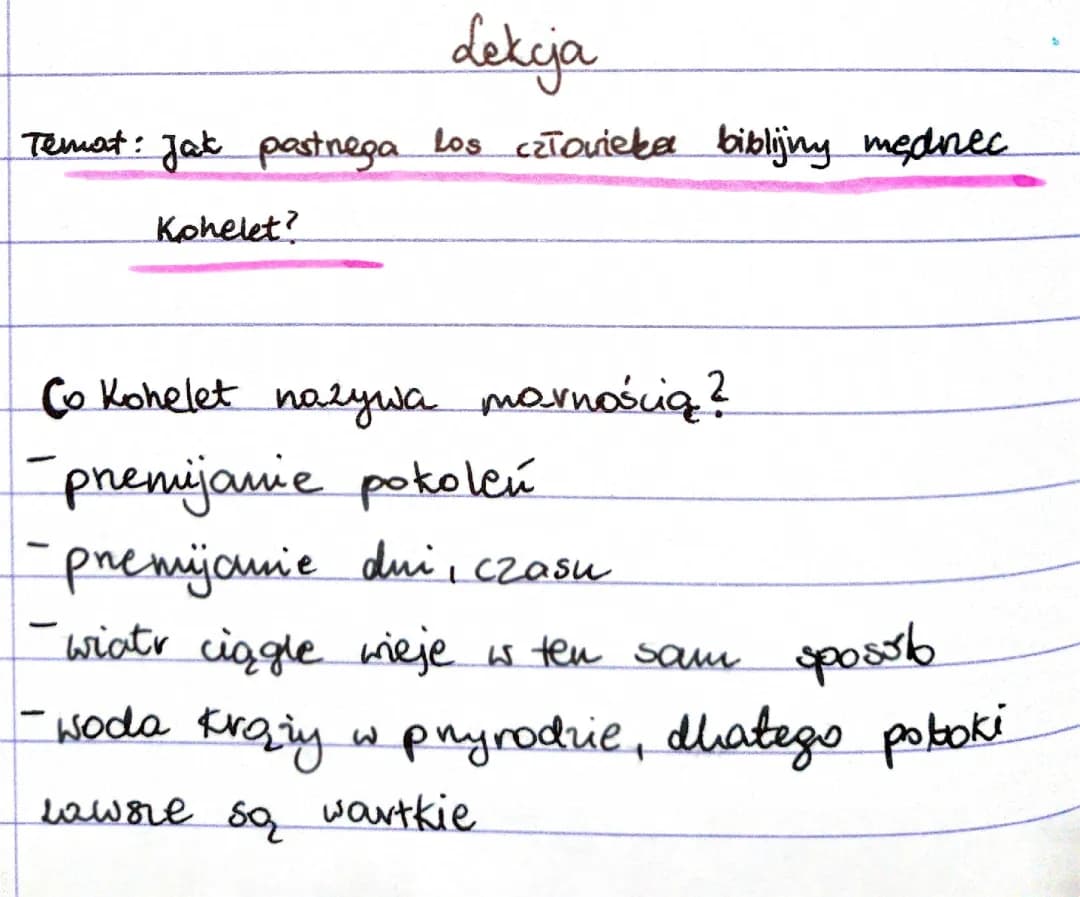 Lekcja
Temat: Jak postrzega los człowieka biblijny mędrzec
Kohelet?
Co Kohelet nazywa marnością?
- przemijanie pokoleń
- przemijanie dni, czasu
- wiatr ciągle wieje w ten sam sposób
- woda krąży w przyrodzie, dlatego potoki
zawsze są wartkie